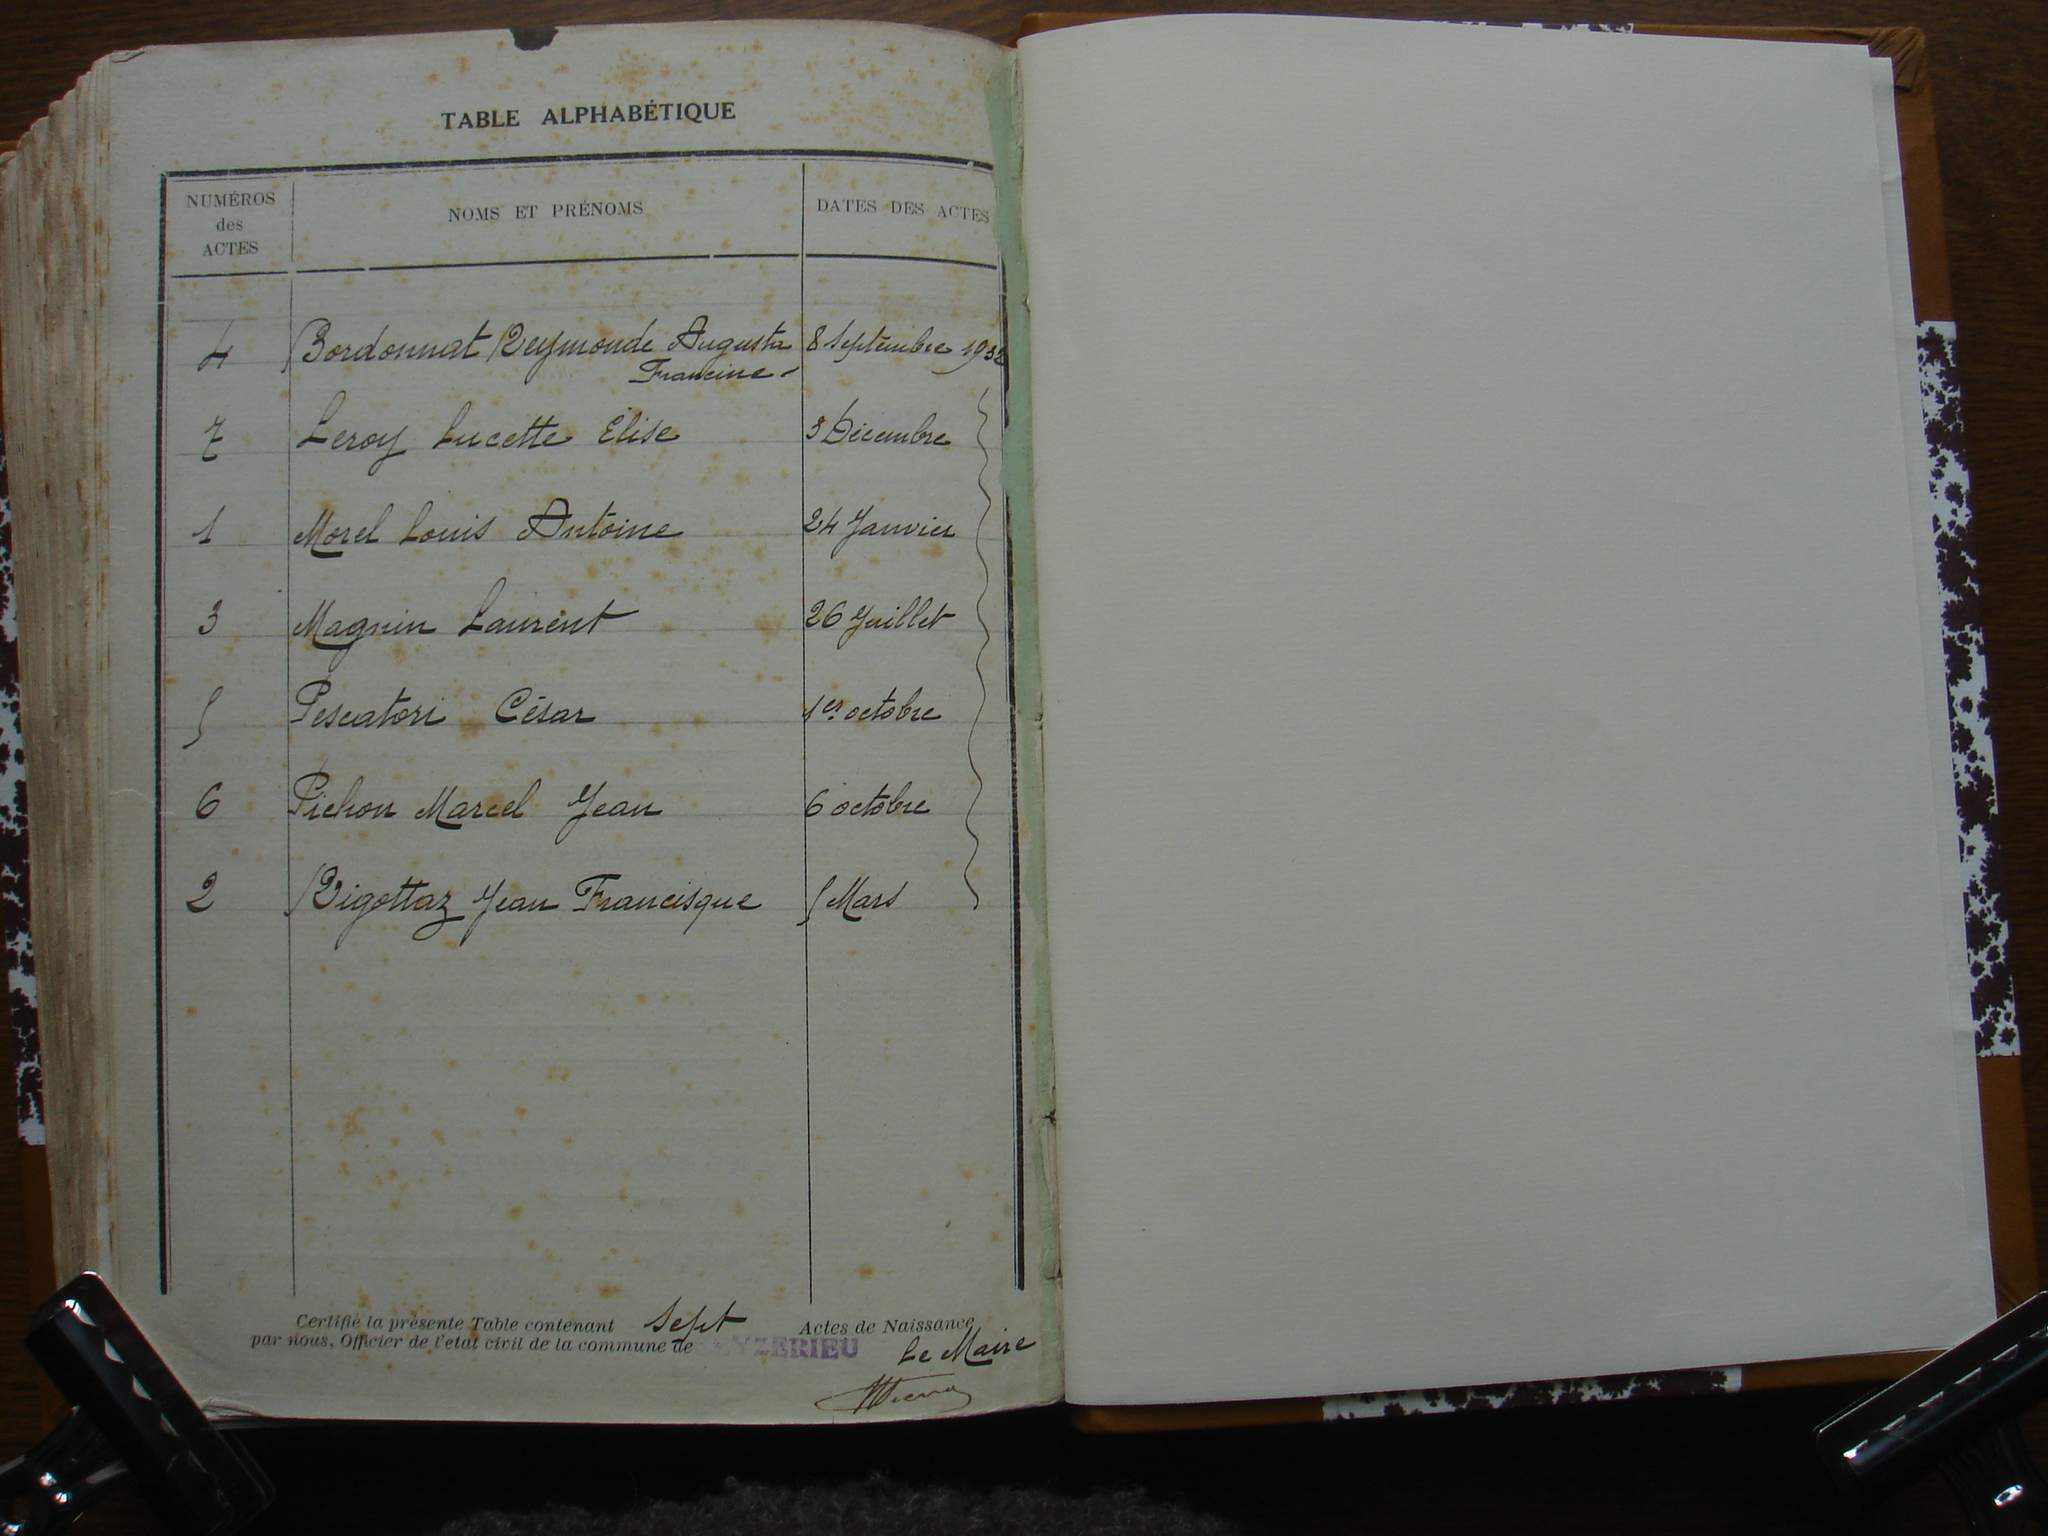 TABLE ALPHABÉTIQUE
NUMÉROS
des
ACTES
NOMS ET PRÉNOMS
DATES DES ACTES
4 Bordonnat Reymonde Augusta 8 Septembre 1932
Francine
7 Leroy Lucette Élise 3 Décembre
1 Morel Louis Antoine 24 Janvier
3 Magnin Laurent 26 Juillet
5 Pescatori César 1er octobre
6 Pichon Marcel Jean 6 octobre
2 Rigottaz Jean Francisque 5 Mars
Certifié la présente Table contenant Sept Actes de Naissance
par nous, Officier de l'etat civil de la commune de
Le Maire